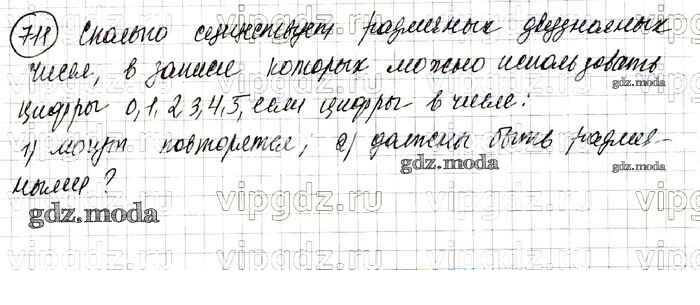 711 Сколько существует различных двузначных
чисел, в записи которых можно использовать
цифры 0,1,2,3,4,5, если цифры в числе:
1) могут повторятся; 2) должны быть различ-
ными?
gdz.moda
gdz.moda
gdz.moda
gdz.moda
vipgdz.ru
vipgdz.ru
vipgdz.ru
vipgdz.ru
vipgdz.ru
vipgdz.ru